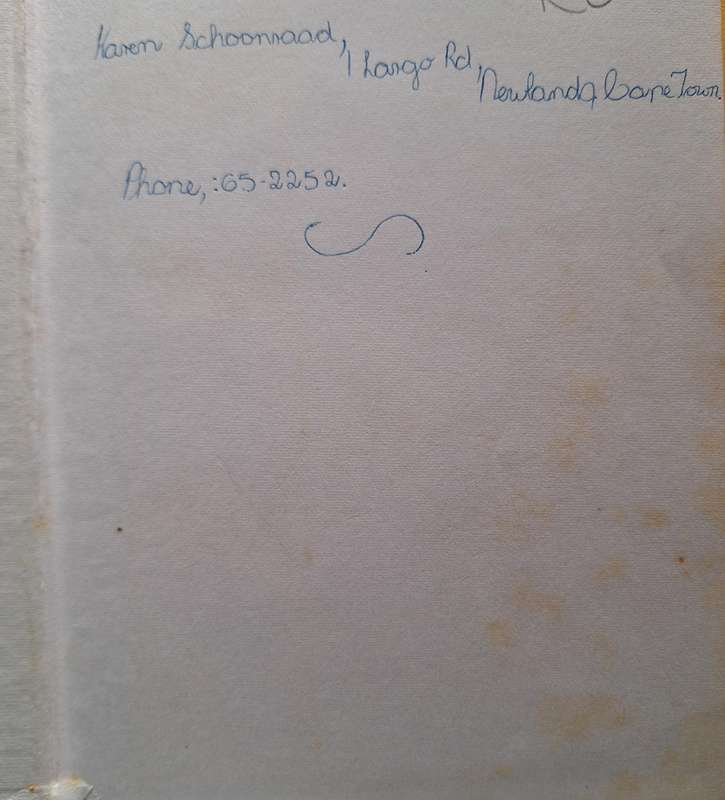 Karen Schoonraad,
1 Largo Rd,
Newlands, Cape Town.
Phone,:65-2252.